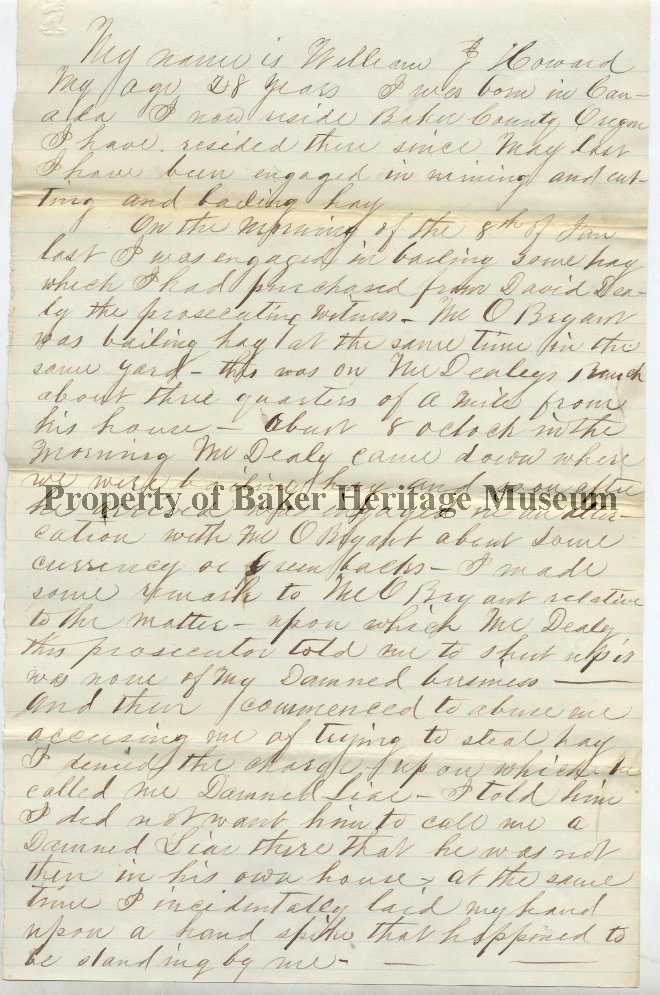 My name is William F Howard
My age 28 years I was born in Can-
ada I now reside Baker County Oregon
I have resided there since May last
I have been engaged in mining and cut-
ting and bailing hay
On the morning of the 8th of Jan
last I was engaged in bailing some hay
which I had purchased from David Dea-
ly the prosecuting witness - Mc O Bryant
was bailing hay at the same time in the
same yard - this was on Mc Dealeys Ranch
about three quarters of a mile from
his house - about 8 oclock in the
Morning Mc Dealy came down where
we were bailing hay and soon after
he arrived engaged in an alter-
Property of Baker Heritage Museum
cation with Mc O Bryant about some
currency or Green backs - I made
some remark to Mc O Bryant relative
to the matter - upon which Mc Dealy
this prosecutor told me to shut up it
was none of My Damned business -
and then commenced to abuse me
accusing me of trying to steal hay
I denied the charge upon which he
called me Damned Liar - I told him
I did not want him to call me a
Damned Liar there that he was not
then in his own house - at the same
time I incidentally laid my hand
upon a hand spike that happened to
be standing by me -